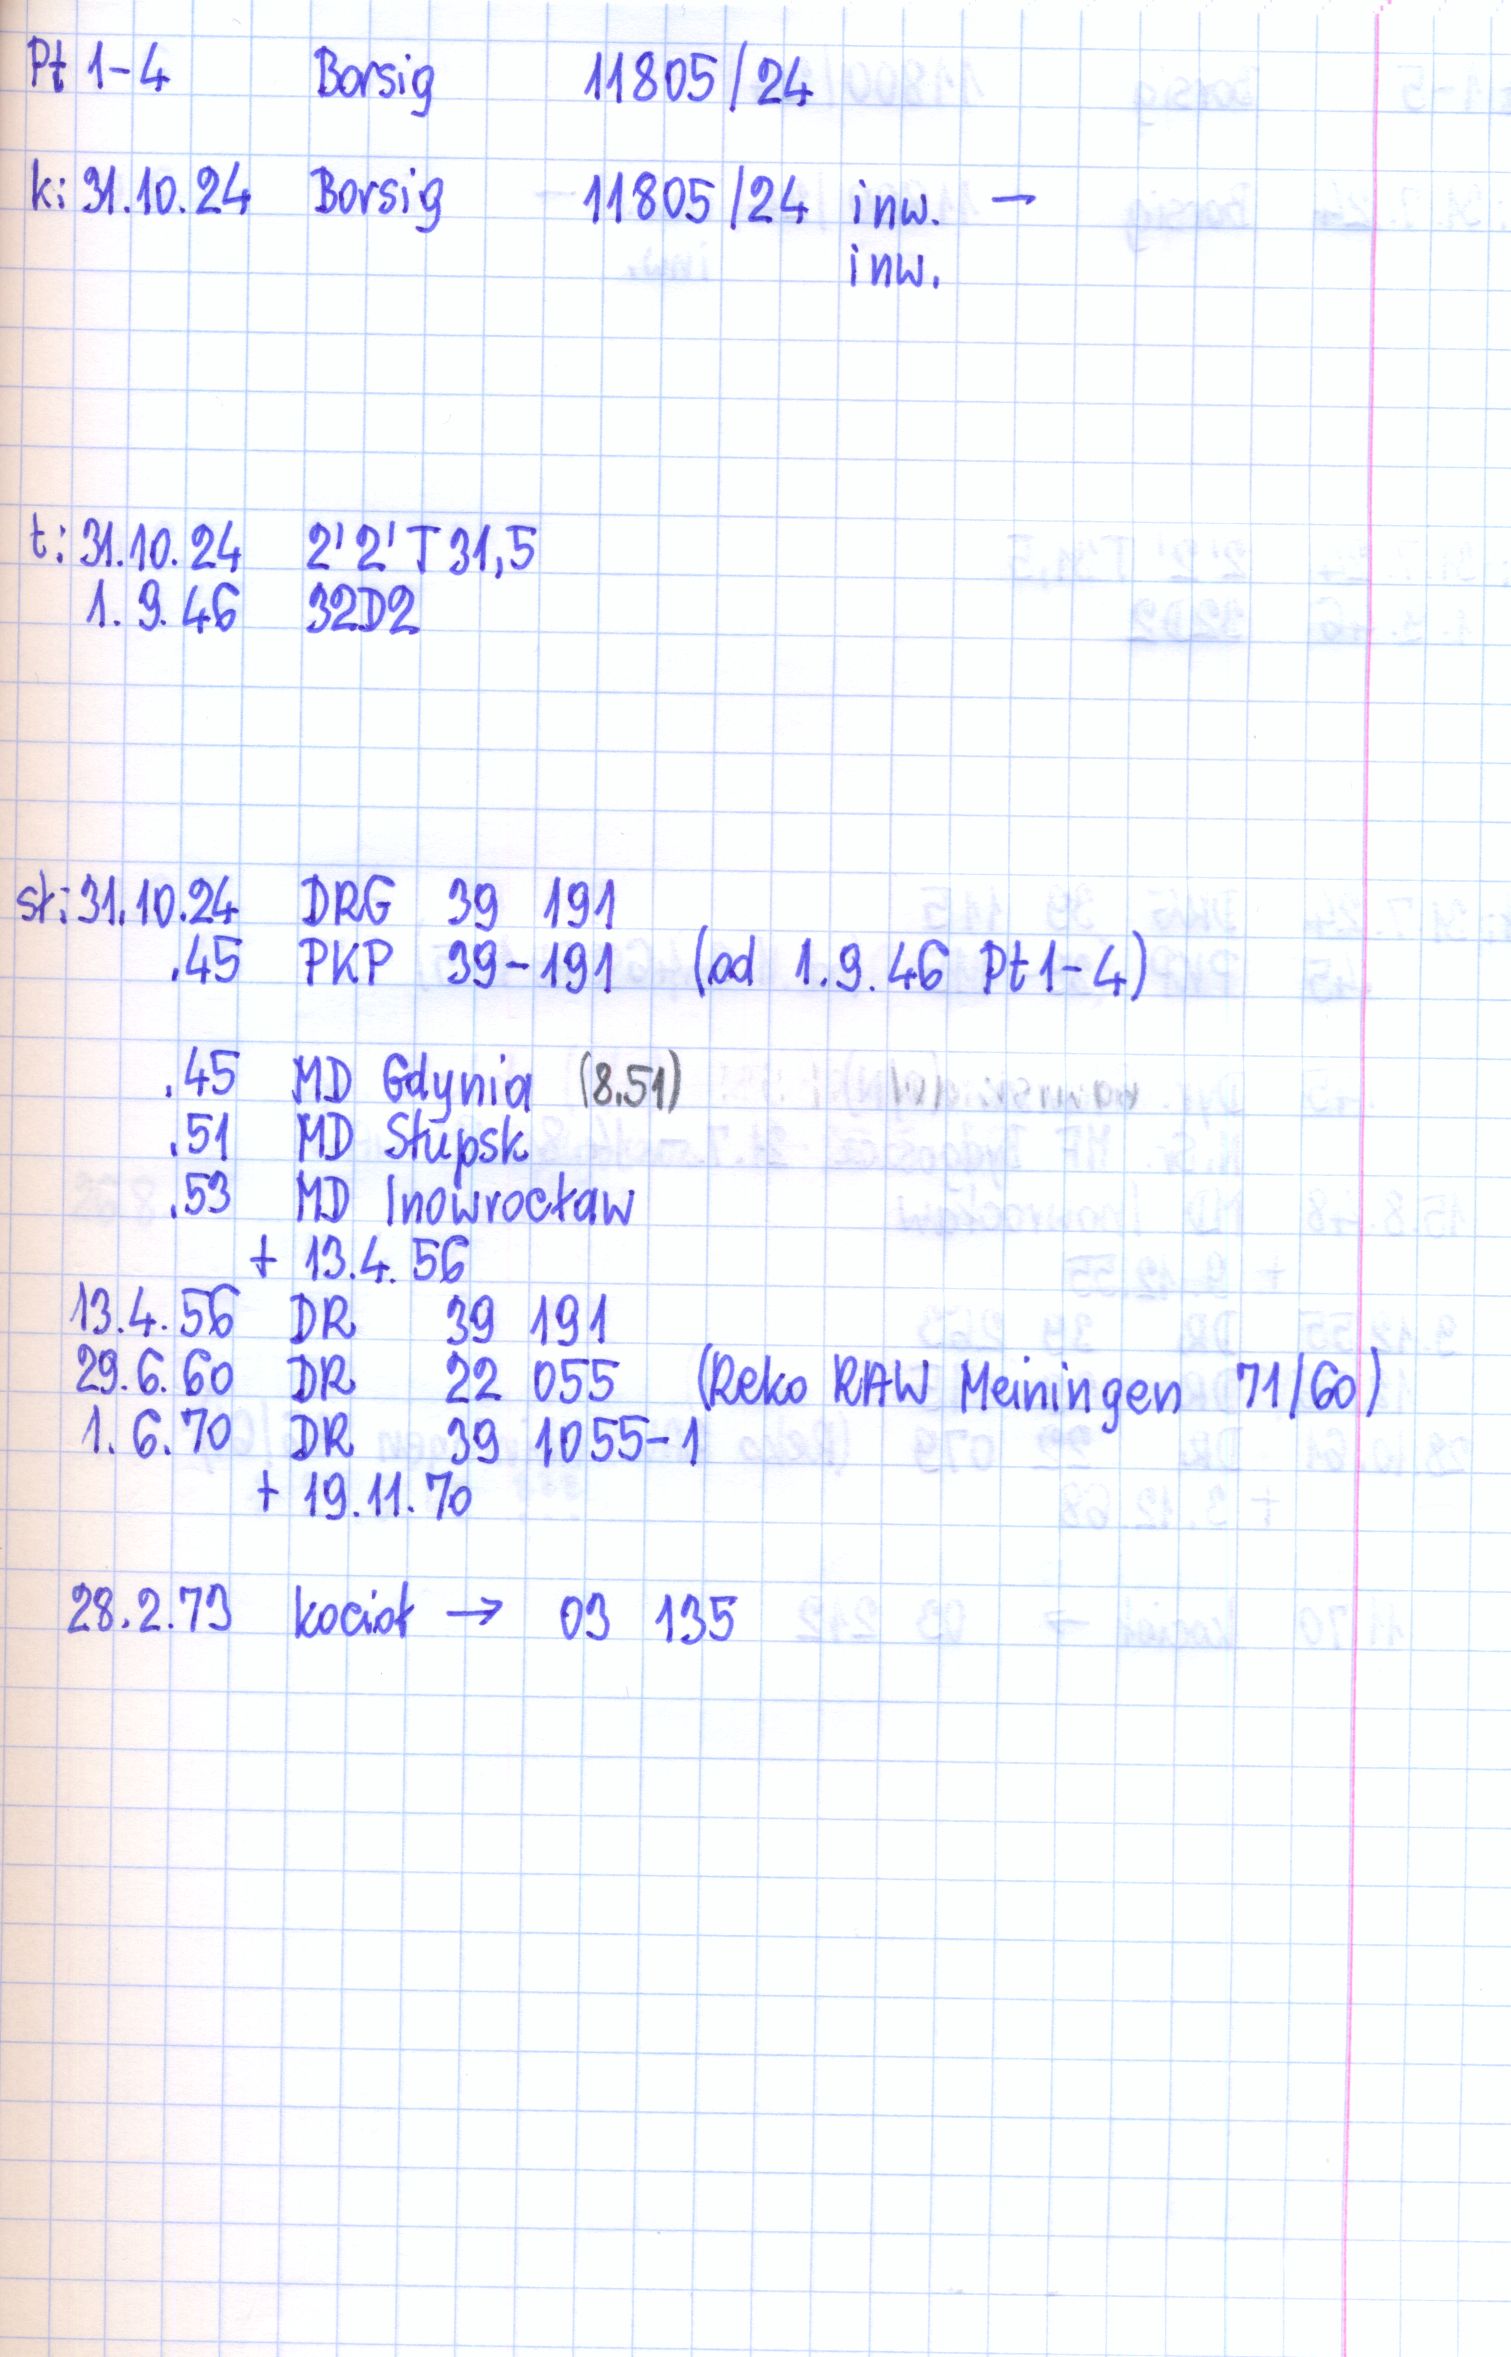 Pt 1-4 Borsig 11805/24
k: 31.10.24 Borsig 11805/24 inw. -
inw.
t: 31.10.24 2'2' T 31,5
1.9.46 32D2
sł: 31.10.24 DRG 39 191
.45 PKP 39-191 (od 1.9.46 Pt1-4)
.45 MD Gdynia (8.51)
.51 MD Słupsk
.53 MD Inowrocław
+ 13.4.56
13.4.56 DR 39 191
29.6.60 DR 22 055 (Reko RAW Meiningen 71/60)
1.6.70 DR 39 1055-1
+ 19.11.70
28.2.73 kocioł → 03 135